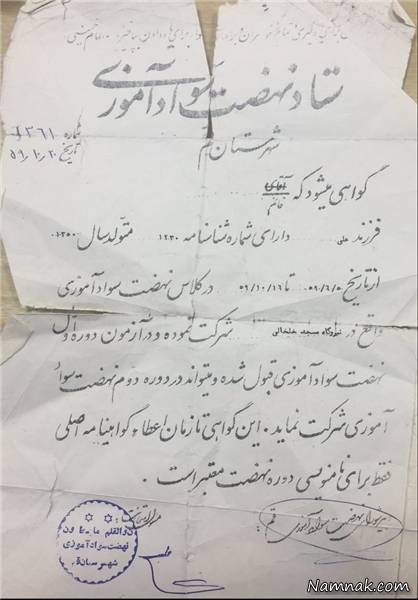 ستاد نهضت سوادآموزی
شهرستان قم
شماره ۱۳۶۱
تاریخ ۵۹٫۱۰٫۲۰
گواهی میشود که آقای
خانم
فرزند علی دارای شماره شناسنامه ۱۲۳۰ متولد سال ۱۳۵۰
از تاریخ ۵۹/۷/۵ تا ۵۹/۱۰/۱۶ در کلاس نهضت سوادآموزی
واقع در مسجد خلخالی شرکت نموده و در آزمون دوره اول
نهضت سوادآموزی قبول شده و میتواند در دوره دوم نهضت سواد
آموزی شرکت نماید. این گواهی تا زمان اعطاء گواهینامه اصلی
فقط برای نامنویسی دوره نهضت معتبر است.
نهضت سوادآموزی قم
ن والقلم و ما یسطرون
نهضت سوادآموزی
شهرستان قم
Namnak.com